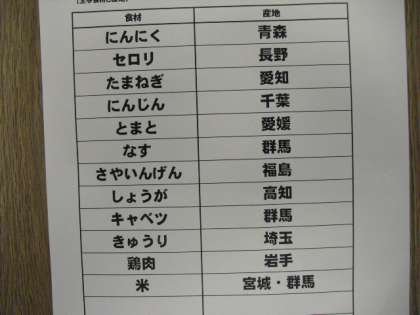 食材 産地
にんにく 青森
セロリ 長野
たまねぎ 愛知
にんじん 千葉
とまと 愛媛
なす 群馬
さやいんげん 福島
しょうが 高知
キャベツ 群馬
きゅうり 埼玉
鶏肉 岩手
米 宮城・群馬